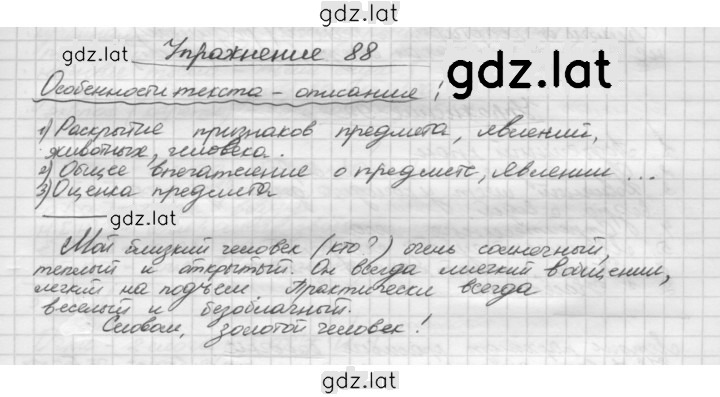 gdz.lat
gdz.lat Упражнение 88
gdz.lat
Особенности текста - описания!
1) Раскрытие признаков предмета, явлений,
животных, человека.
2) Общее впечатление о предмете, явлении ...
3) Оценка предмета
gdz.lat
Мой близкий человек (кто?) очень солнечный,
теплый и открытый. Он всегда мягкий в общении,
легкий на подъем Практически всегда
веселый и безоблачный.
Словом, золотой человек!
gdz.lat